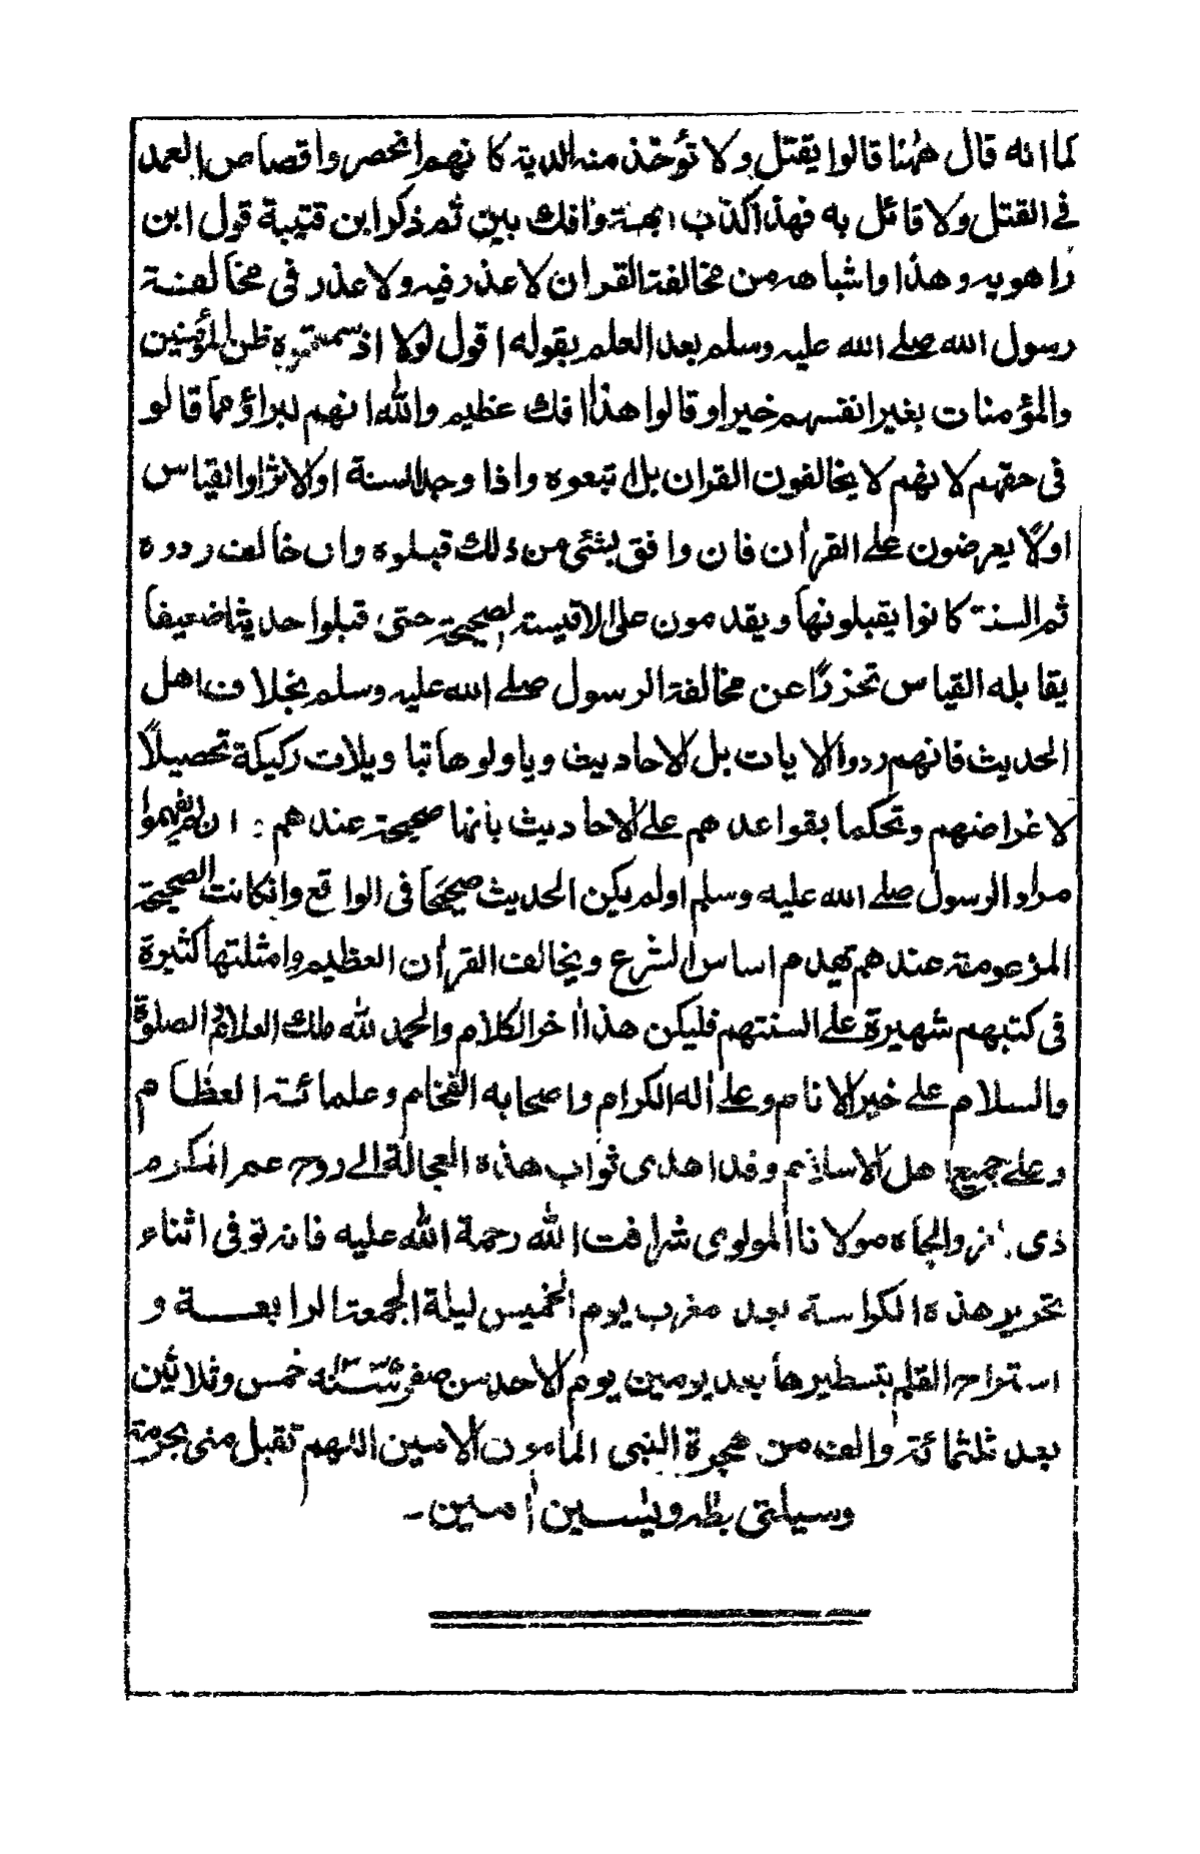 كما انه قال ههنا قالوا يقتل ولا تؤخذ منه الدية كا نهم انحصروا قصاص العمد
في القتل ولا قائل به فهذا كذب بهتة وافك بين ثم ذكر ابن قتيبة قول ابن
راهويه وهذا واشباهه من مخالفة القران لا عذر فيه ولا عذر في مخالفة
رسول الله صلے الله عليه وسلم بعد العلم بقوله اقول لولا اذ سمعتموه ظن المؤمنين
والمؤمنات بغير انفسهم خيرا وقالوا هذا افك عظيم والله انهم لبراؤ مما قالو
فى حقهم لانهم لا يخالفون القران بل اتبعوه واذا وجد السنة اولا ثرا والقياس
اولًا يعرضون علے القرأن فان وافق بشئ من ذلك قبلوه وان خالف ردوه
ثم السنة كانوا يقبلونها ويقدمون على الاقيسة الصحيحة حتى قبلوا حديثا ضعيفا
يقابله القياس تحذرًا عن مخالفة الرسول صلے الله عليه وسلم بخلاف اهل
الحديث فانهم ردوا الايات بل الاحاديث وياولوها تبا ويلات ركيكة تحصيلًا
لاغراضهم وتحكما بقواعدهم علے الاحاديث بأنها صحيحة عندهم : ان لم يفهموا
مراد الرسول صلے الله عليه وسلم اولم يكن الحديث صحيحًا فى الواقع وانكانت الصحيحة
المزعومة عندهم تهدم اساس الشرع ويخالف القرأن العظيم وامثلتها كثيرة
فى كتبهم شهيرة علے السنتهم فليكن هذا اخر الكلام والحمد لله ملك العلام والصلوة
والسلام علے خير الانام وعلے أله الكرام واصحابه الفخام وعلمائه العظام
وعلے جميع اهل الاساتذه وقد اهدى ثواب هذه العجالة الے روح عم المكرم
ذى والجاه مولانا المولوى شرافت الله رحمة الله عليه فانه توفى اثناء
تحرير هذه الكراسة بعد مغرب يوم الخميس ليلة الجمعة الرابعة و
استراح القلم بتسطيرها بعد يومين يوم الاحد من صفر سنة خمس وثلاثين
بعد ثلثمائة والف من هجرة النبى المامون الامين اللهم تقبل منى بحرمة
وسيلتى بطٰه ويٰسين أمين -